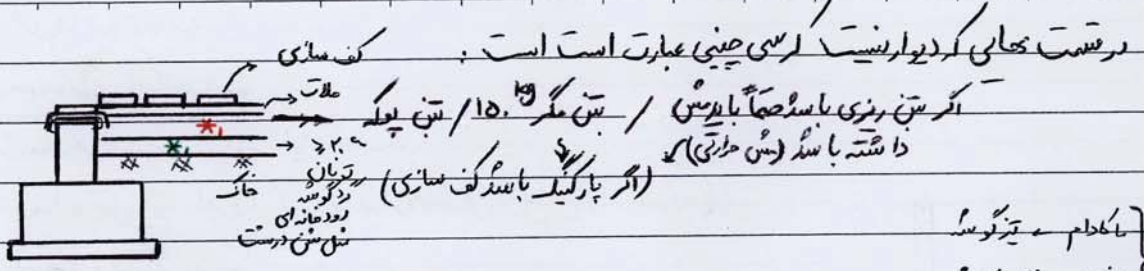 در قسمت هایی که دیوار نیست کرسی چینی عبارت است است :
کف سازی
ملات
اگر بتن ریزی باشد حتماً باید مش / بتن مگر ۱۵۰ kg / بتن پوکه
داشته باشد (مش حرارتی)
(اگر پارکینگ باشد کف سازی)
*۱
*۱
خاک
گردگوشه
رودخانه ای
ماکادام ← تیزگوشه